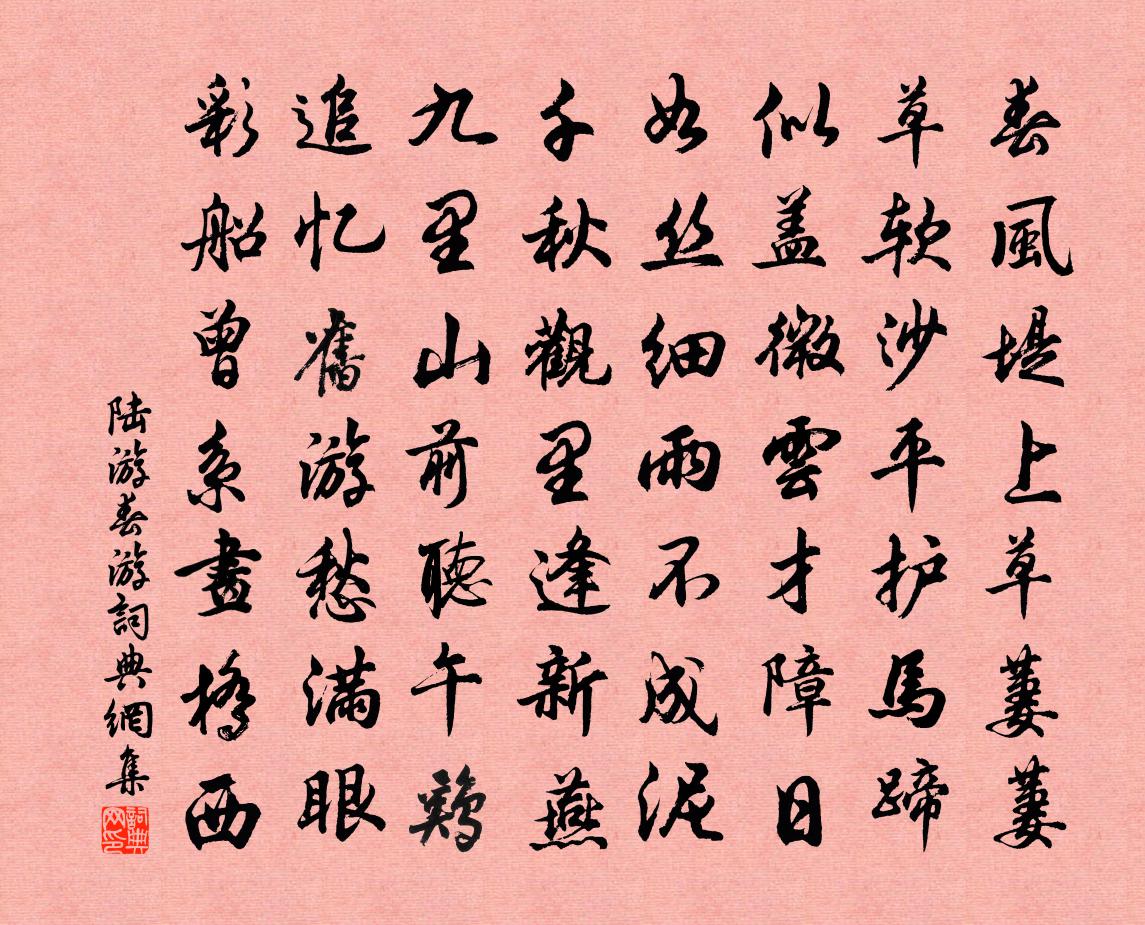 春風堤上草萋萋
草软沙平护馬蹄
似盖微雲才障日
如丝细雨不成泥
千秋觀里逢新燕
九里山前聽午鷄
追忆舊游愁满眼
彩船曾系畫橋西
陆游春游詞典網集
詞典网印